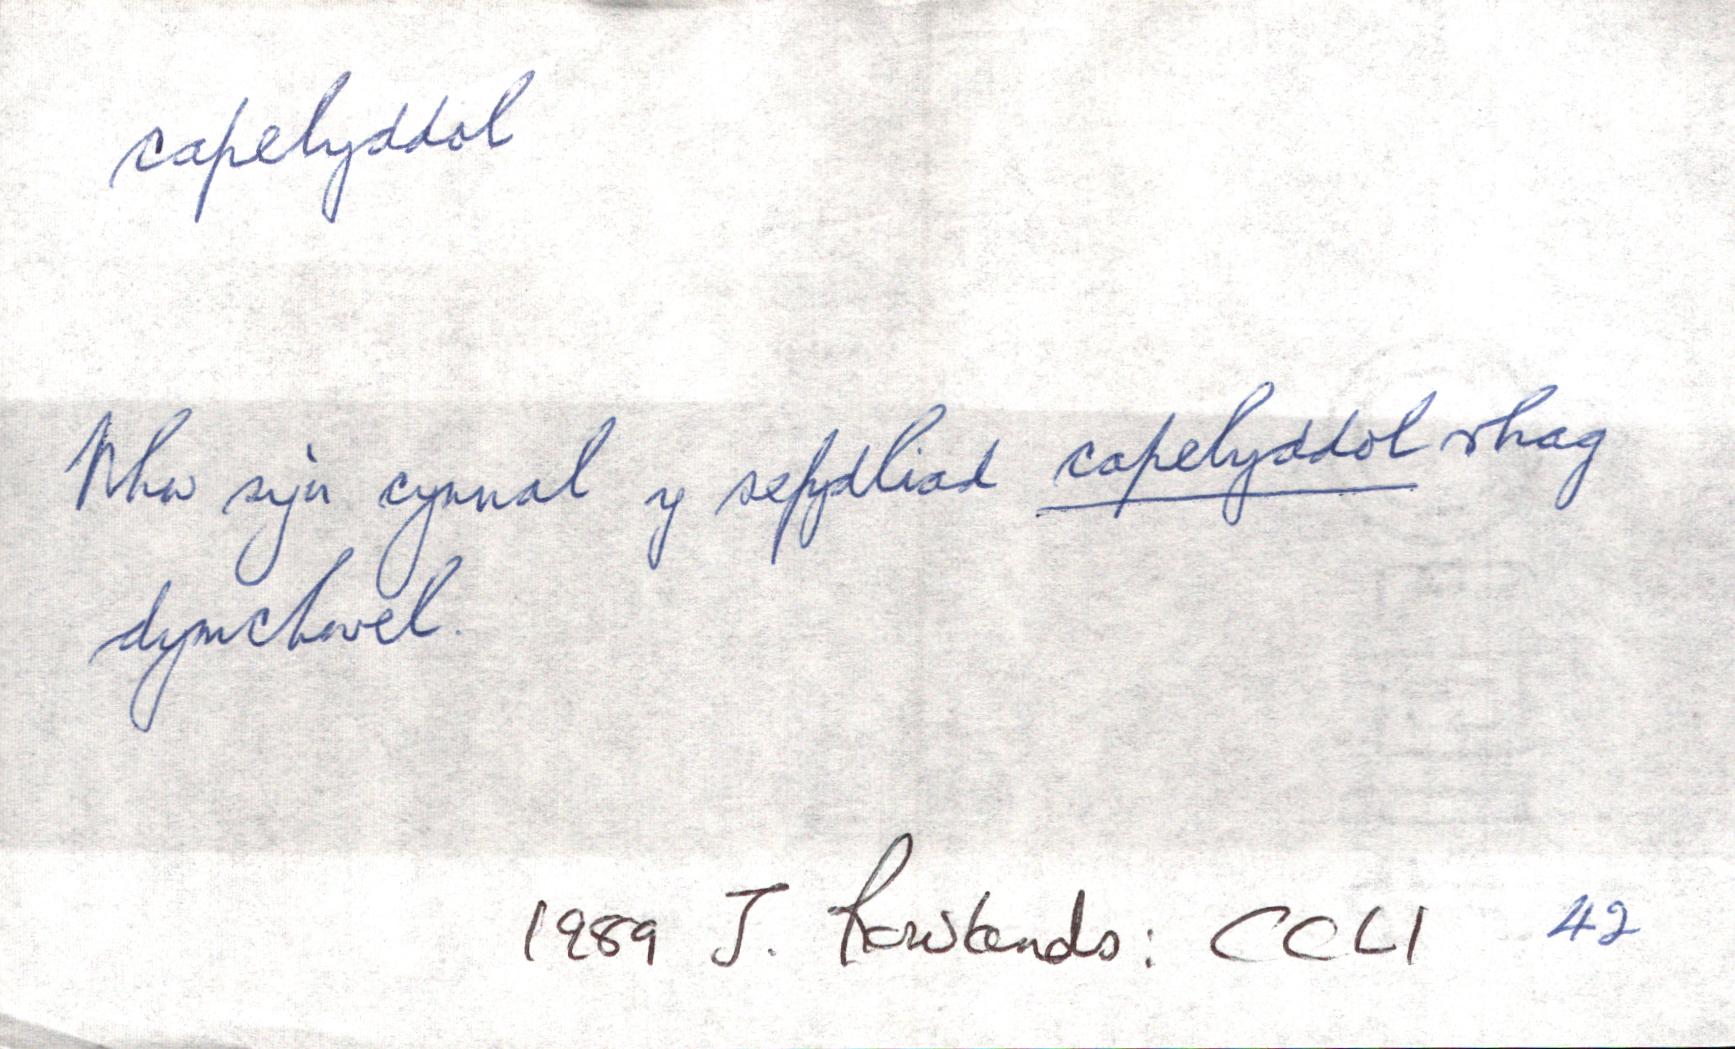 capelyddol
Nhw sy'n cynnal y sefydliad capelyddol rhag
dymchwel.
1989 J. Rowlands: CCLl 42